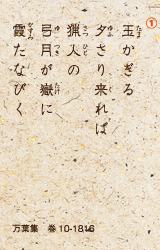 ①
玉かぎる
夕さり来れば
猟人の
弓月が嶽に
霞たなびく
万葉集 巻10-1816